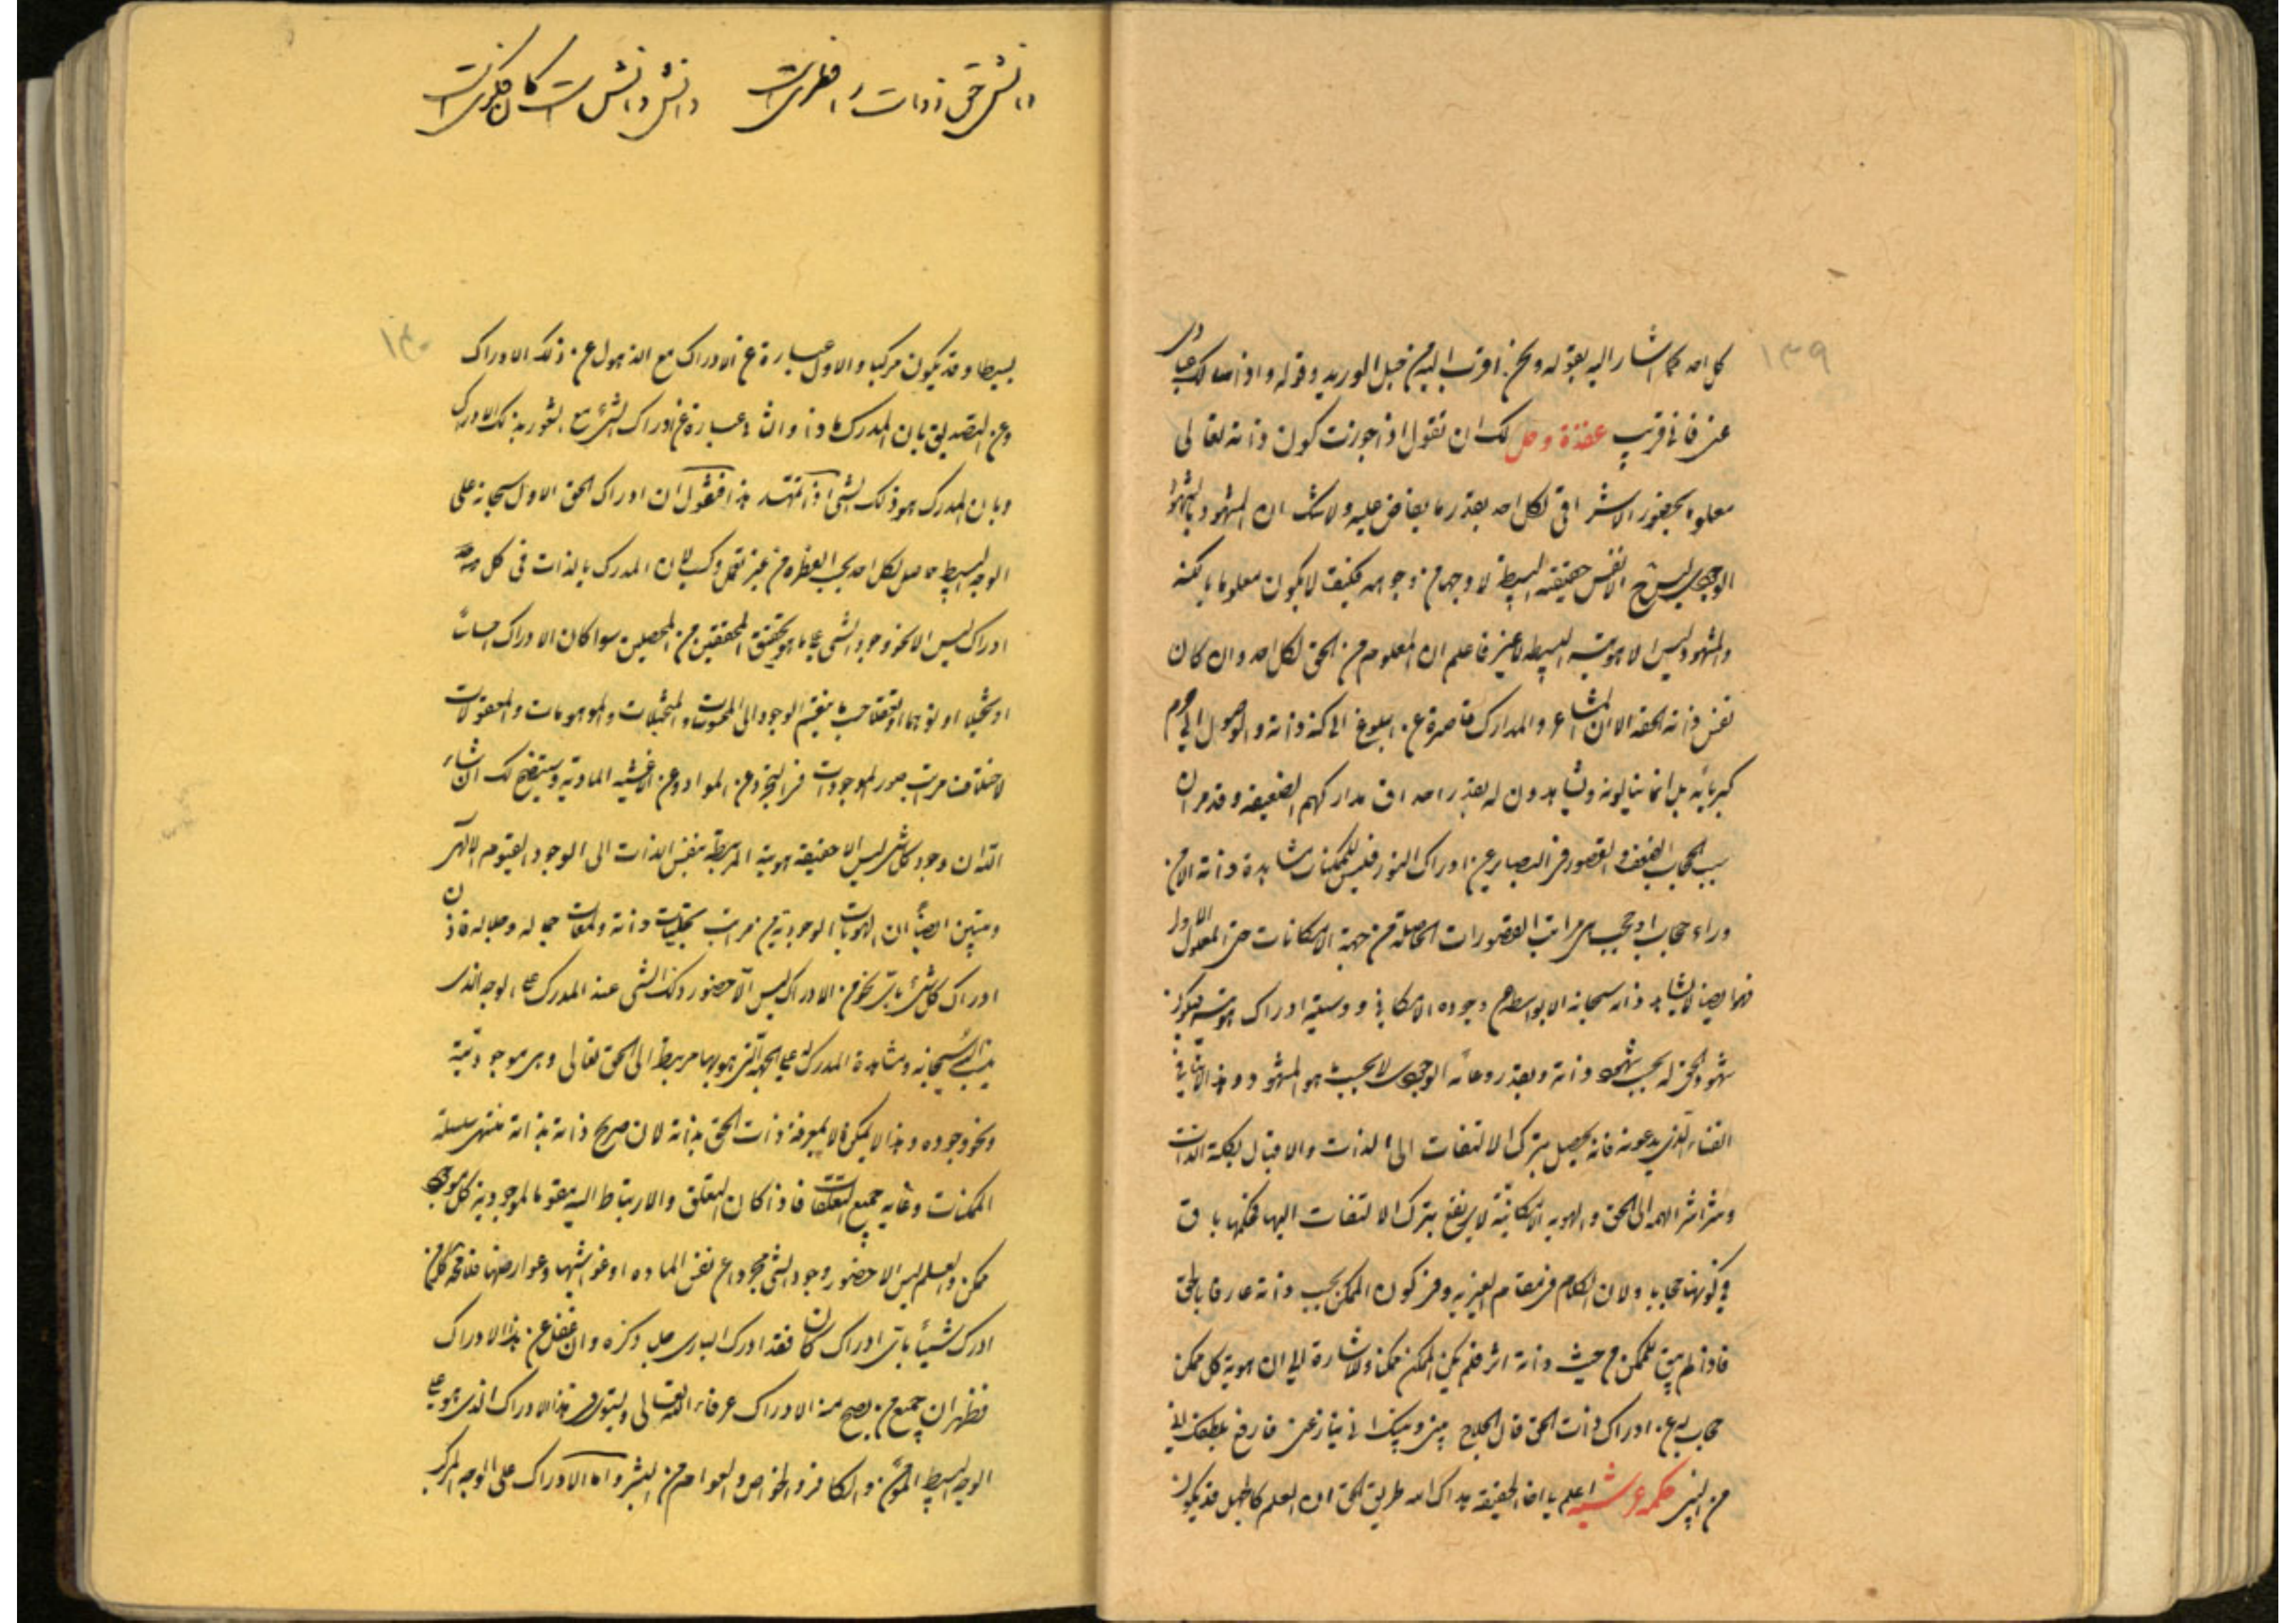 ١٣٩
كل احد كما اشار اليه بقوله ونحن اقرب اليه من حبل الوريد وقوله واذا سالك عبادى
عنى فانى قريب عقدة وحل لك ان تقول اذا جوزت كون ذاته تعالى
معلوما بحضور الاشراقى لكل احد بقدر ما يفاض عليه ولا شك ان المشهود بالشهود
الوجودى ليس الا نفس حقيقته البسيطة لا وجها من وجوهه فكيف لا يكون معلوما بالكنه
والمشهود ليس الا هويته البسيطه لا غير فاعلم ان المعلوم من الحق لكل احد وان كان
نفس ذاته الحقه الا ان المشاعر والمدارك قاصرة عن البلوغ الى كنه ذاته والوصول الى حرم
كبريائه بل انما ينالونه ويشاهدون له بقدر احداق مداركهم الضعيفه وقد مر ان
سبب الحجاب الضعف والقصور فى البصاير عن ادراك النور فليس للممكنات مشاهدة ذاته الا من
وراء حجاب او حجب هى مراتب القصورات الحاصلة من جهة الامكانات حتى المعلول الاول
فهو ايضا لا يشاهد ذاته سبحانه الا بواسطة وجوده الامكانى ووسيلة ادراك هويته فيكون
شهود الحق له بحسب شهود ذاته وبقدر وعائه الوجودى لا بحسب ما هو المشهود وهذا لا ينافى
الفناء الذى يدعونه فانه يحصل بترك الالتفات الى الذات والاقبال بكلية الذات
وشراشر الهمه الى الحق والهويه الامكانية لا يرتفع بترك الالتفات اليها فحكمها باق
فى كونها حجابا ولان الكلام فى مقام الغيريه وفى كون الممكن بحسب ذاته عارفا بالحق
فاذا لم يبق للممكن من حيث ذاته اثر فلم يكن الممكن ممكنا وللاشارة الى ان هوية كل ممكن
حجاب له عن ادراك ذات الحق قال الحلاج بينى وبينك انى ينازعنى فارفع بلطفك انى
من البين حكمة عرشيه اعلم يا اخا الحقيقه هداك الله طريق الحق ان العلم كالجهل قد يكون
دانش حق ذوات را فطرى است    دانش دانش است كان فكرى است
١٤٠
بسيطا وقد يكون مركبا والاول عبارة عن الادراك مع الذهول عن ذلك الادراك
وعن التصديق بان المدرك ما ذا والثانى عبارة عن ادراك الشئ مع الشعور بذلك الادراك
وبان المدرك هو ذلك الشئ اذا تمهد هذا فنقول ان ادراك الحق الاول سبحانه على
الوجه البسيط حاصل لكل احد بحسب الفطره من غير تعمل وكسب لان المدرك بالذات فى كل
ادراك ليس الا نحو وجود الشئ على ما هو تحقيق المحققين من المحصلين سوا كان الادراك احساسا
او تخيلا او توهما او تعقلا حسب ما ينقسم الوجود الى المحسوسات والمتخيلات والموهومات والمعقولات
لاختلاف مراتب صور الموجودات فى التجرد عن المواد وعن الاغشيه الماديه وسيتضح لك ان شاء
الله ان وجود كل شئ ليس الا حقيقة هويته المرتبطة بنفس الذات الى الوجود القيوم الالهى
وستبين ايضا ان الهويات الوجودية من مراتب تجليات ذاته ولمعات جماله وجلاله فاذن
ادراك كل شئ باى نحو من الادراك ليس الا حضور ذلك الشئ عند المدرك على الوجه الذى
يناسبه سبحانه ومشاهدة المدرك على الجهة التى هو بها مرتبط الى الحق تعالى وهى موجوديته
ونحو وجوده وهذا لا يمكن الا بمعرفة ذات الحق بذاته لان صريح ذاته بذاته منتهى سلسلة
الممكنات وغايه جميع التعلقات فاذا كان التعلق والارتباط اليه مقوما لموجودية كل موجود
ممكن والعلم ليس الا حضور وجود الشئ مجردا عن نفس الماده او غواشيها وعوارضها فلا محه كل من
ادرك شيئا باى ادراك كان فقد ادرك البارى جل ذكره وان غفل عن هذا الادراك
فظهر ان جميع من يصح منه الادراك عرفاء الله تعالى ويستوى فى هذا الادراك الذى هو على
الوجه البسيط المؤمن والكافر والخواص والعوام من البشر واما الادراك على الوجه المركب